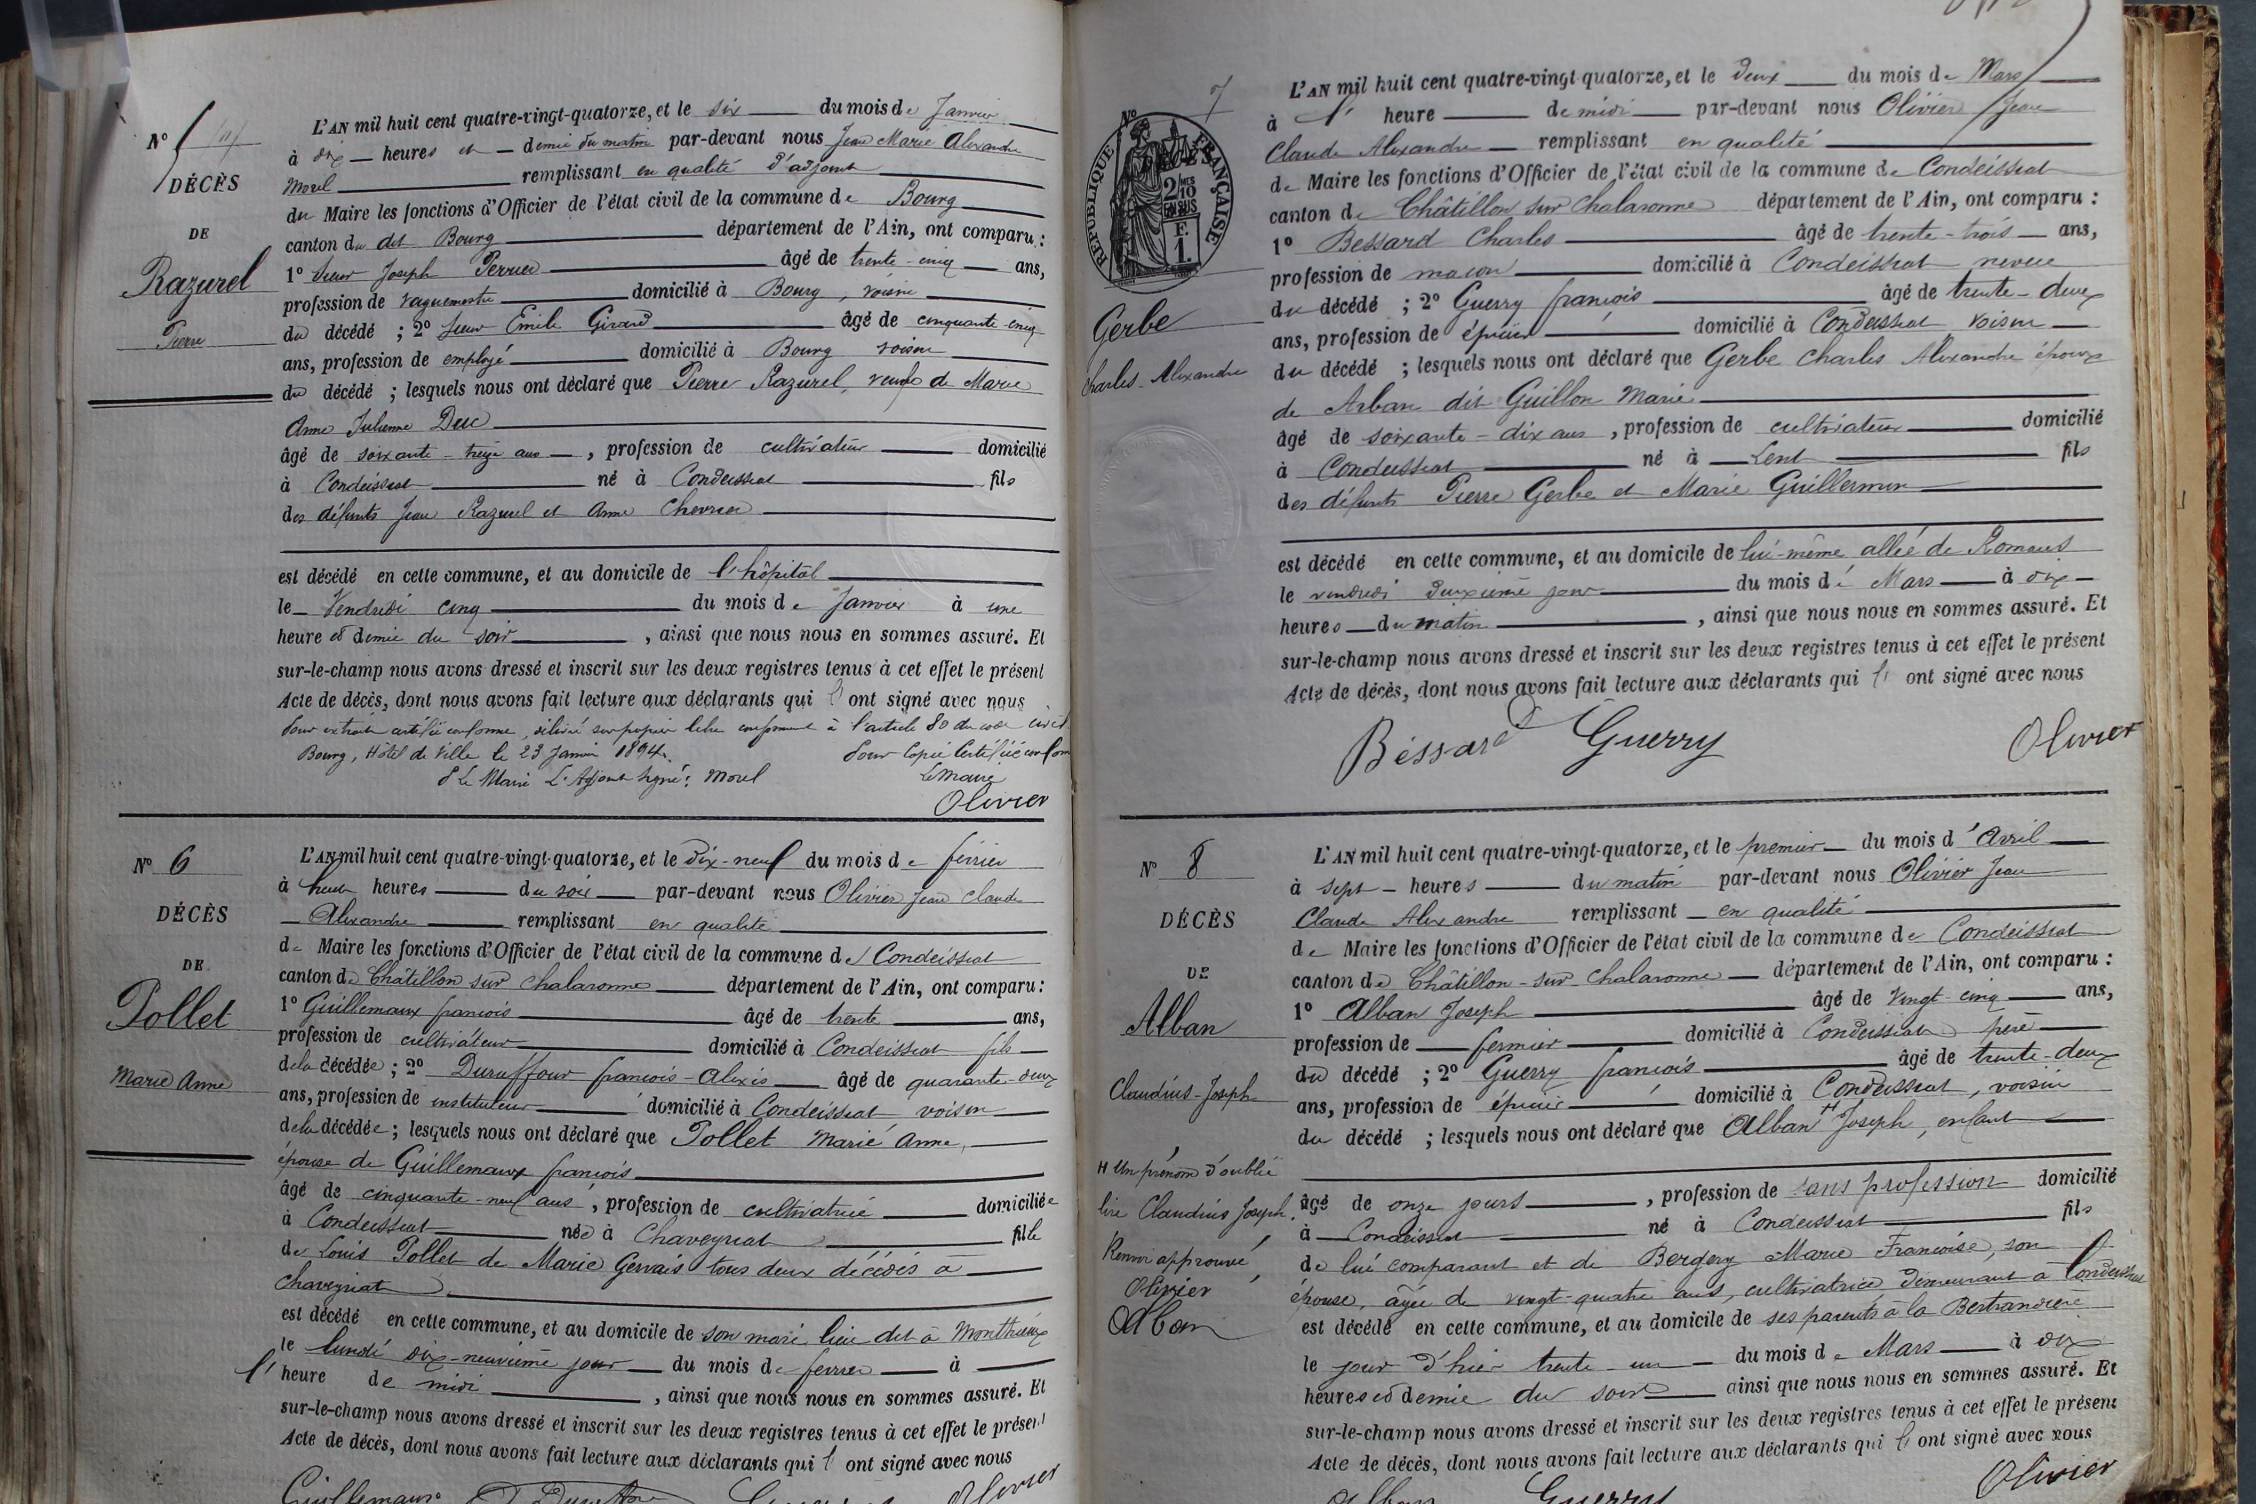 Nº 5
DÉCÈS
DE
Razurel
Pierre
L'AN mil huit cent quatre-vingt-quatorze, et le six du mois de Janvier
à dix heures et demie du matin par-devant nous Jean Marie Alexandre
Morel remplissant en qualité d'adjoint
du Maire les fonctions d'Officier de l'état civil de la commune de Bourg
canton du dit Bourg département de l'Ain, ont comparu :
1º sieur Joseph Perrier âgé de trente-cinq ans,
profession de vaguemestre domicilié à Bourg, voisin
du décédé ; 2º sieur Emile Girard âgé de cinquante-cinq
ans, profession de employé domicilié à Bourg voisin
du décédé ; lesquels nous ont déclaré que Pierre Razurel, veuf de Marie
Anne Julienne Duc
âgé de soixante-treize ans, profession de cultivateur domicilié
à Condeissiat né à Condeissiat fils
des défunts Jean Razurel et Anne Chevrier
est décédé en cette commune, et au domicile de l'hôpital
le Vendredi cinq du mois de Janvier à une
heure et demie du soir, ainsi que nous nous en sommes assuré. Et
sur-le-champ nous avons dressé et inscrit sur les deux registres tenus à cet effet le présent
Acte de décès, dont nous avons fait lecture aux déclarants qui l'ont signé avec nous
Pour extrait certifié conforme, délivré sur papier libre conformément à l'article 80 du code civil
Bourg, Hôtel de Ville le 23 Janvier 1894. Pour Copie Certifiée conforme
P Le Maire L'Adjoint signé : Morel Le Maire
Olivier
Nº 6
DÉCÈS
DE
Pollet
Marie Anne
L'AN mil huit cent quatre-vingt-quatorze, et le dix-neuf du mois de février
à heures du soir par-devant nous Olivier Jean Claude
Alexandre remplissant en qualité
de Maire les fonctions d'Officier de l'état civil de la commune de Condeissiat
canton de Châtillon sur Chalaronne département de l'Ain, ont comparu :
1º Guillemaux françois âgé de trente ans,
profession de cultivateur domicilié à Condeissiat fils
de la décédée ; 2º Duraffour françois-Alexis âgé de quarante-deux
ans, profession de instituteur domicilié à Condeissiat voisin
de la décédée ; lesquels nous ont déclaré que Pollet Marie Anne,
épouse de Guillemaux françois
âgé de cinquante-neuf ans, profession de cultivatrice domiciliée
à Condeissiat née à Chaveyriat fille
de Louis Pollet de Marie Gervais tous deux décédés à
Chaveyriat
est décédé en cette commune, et au domicile de son mari lieu dit à Monthieux
le lundi dix-neuvième jour du mois de février à
l' heure de midi, ainsi que nous nous en sommes assuré. Et
sur-le-champ nous avons dressé et inscrit sur les deux registres tenus à cet effet le présent
Acte de décès, dont nous avons fait lecture aux déclarants qui l'ont signé avec nous
Guillemaux Olivier
Nº 7
RÉPUBLIQUE FRANÇAISE
2/10 EN SUS
F. 1.
Gerbe
Charles-Alexandre
L'AN mil huit cent quatre-vingt-quatorze, et le deux du mois de Mars
à l' heure de midi par-devant nous Olivier Jean
Claude Alexandre remplissant en qualité
de Maire les fonctions d'Officier de l'état civil de la commune de Condeissiat
canton de Châtillon sur Chalaronne département de l'Ain, ont comparu :
1º Bessard Charles âgé de trente-trois ans,
profession de maçon domicilié à Condeissiat neveu
du décédé ; 2º Guerry françois âgé de trente-deux
ans, profession de épicier domicilié à Condeissiat voisin
du décédé ; lesquels nous ont déclaré que Gerbe Charles Alexandre époux
de Arban dit Guillon Marie
âgé de soixante-dix ans, profession de cultivateur domicilié
à Condeissiat né à Lent fils
des défunts Pierre Gerbe et Marie Guillermin
est décédé en cette commune, et au domicile de lui-même allée de Romans
le vendredi deuxième jour du mois de Mars à dix
heures du matin, ainsi que nous nous en sommes assuré. Et
sur-le-champ nous avons dressé et inscrit sur les deux registres tenus à cet effet le présent
Acte de décès, dont nous avons fait lecture aux déclarants qui l'ont signé avec nous
Bessard Guerry Olivier
Nº 8
DÉCÈS
DE
Alban
Claudius-Joseph
H Un prénom d'oublié
lire Claudius Joseph.
Renvoi approuvé
Olivier
Alban
L'AN mil huit cent quatre-vingt-quatorze, et le premier du mois d'Avril
à sept heures du matin par-devant nous Olivier Jean
Claude Alexandre remplissant en qualité
de Maire les fonctions d'Officier de l'état civil de la commune de Condeissiat
canton de Châtillon-sur-Chalaronne département de l'Ain, ont comparu :
1º Alban Joseph âgé de vingt-cinq ans,
profession de fermier domicilié à Condeissiat père
du décédé ; 2º Guerry françois âgé de trente-deux
ans, profession de épicier domicilié à Condeissiat, voisin
du décédé ; lesquels nous ont déclaré que Alban H Joseph, enfant
âgé de onze jours, profession de sans profession domicilié
à Condeissiat né à Condeissiat fils
de lui comparant et de Bergery Marie Françoise, son
épouse, âgée de vingt-quatre ans, cultivatrice demeurant à Condeissiat
est décédé en cette commune, et au domicile de ses parents à la Bertrandière
le jour d'hier trente-un du mois de Mars à dix
heures et demie du soir ainsi que nous nous en sommes assuré. Et
sur-le-champ nous avons dressé et inscrit sur les deux registres tenus à cet effet le présent
Acte de décès, dont nous avons fait lecture aux déclarants qui l'ont signé avec nous
Alban Guerry Olivier